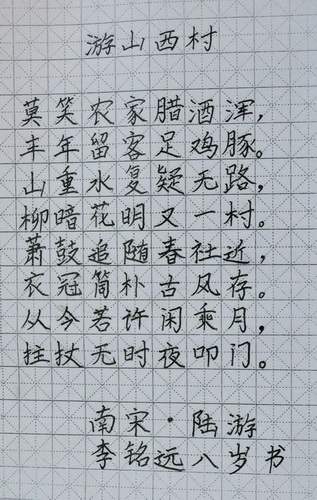 游山西村
莫笑农家腊酒浑，
丰年留客足鸡豚。
山重水复疑无路，
柳暗花明又一村。
萧鼓追随春社近，
衣冠简朴古风存。
从今若许闲乘月，
拄杖无时夜叩门。
南宋·陆游
李铭远八岁书